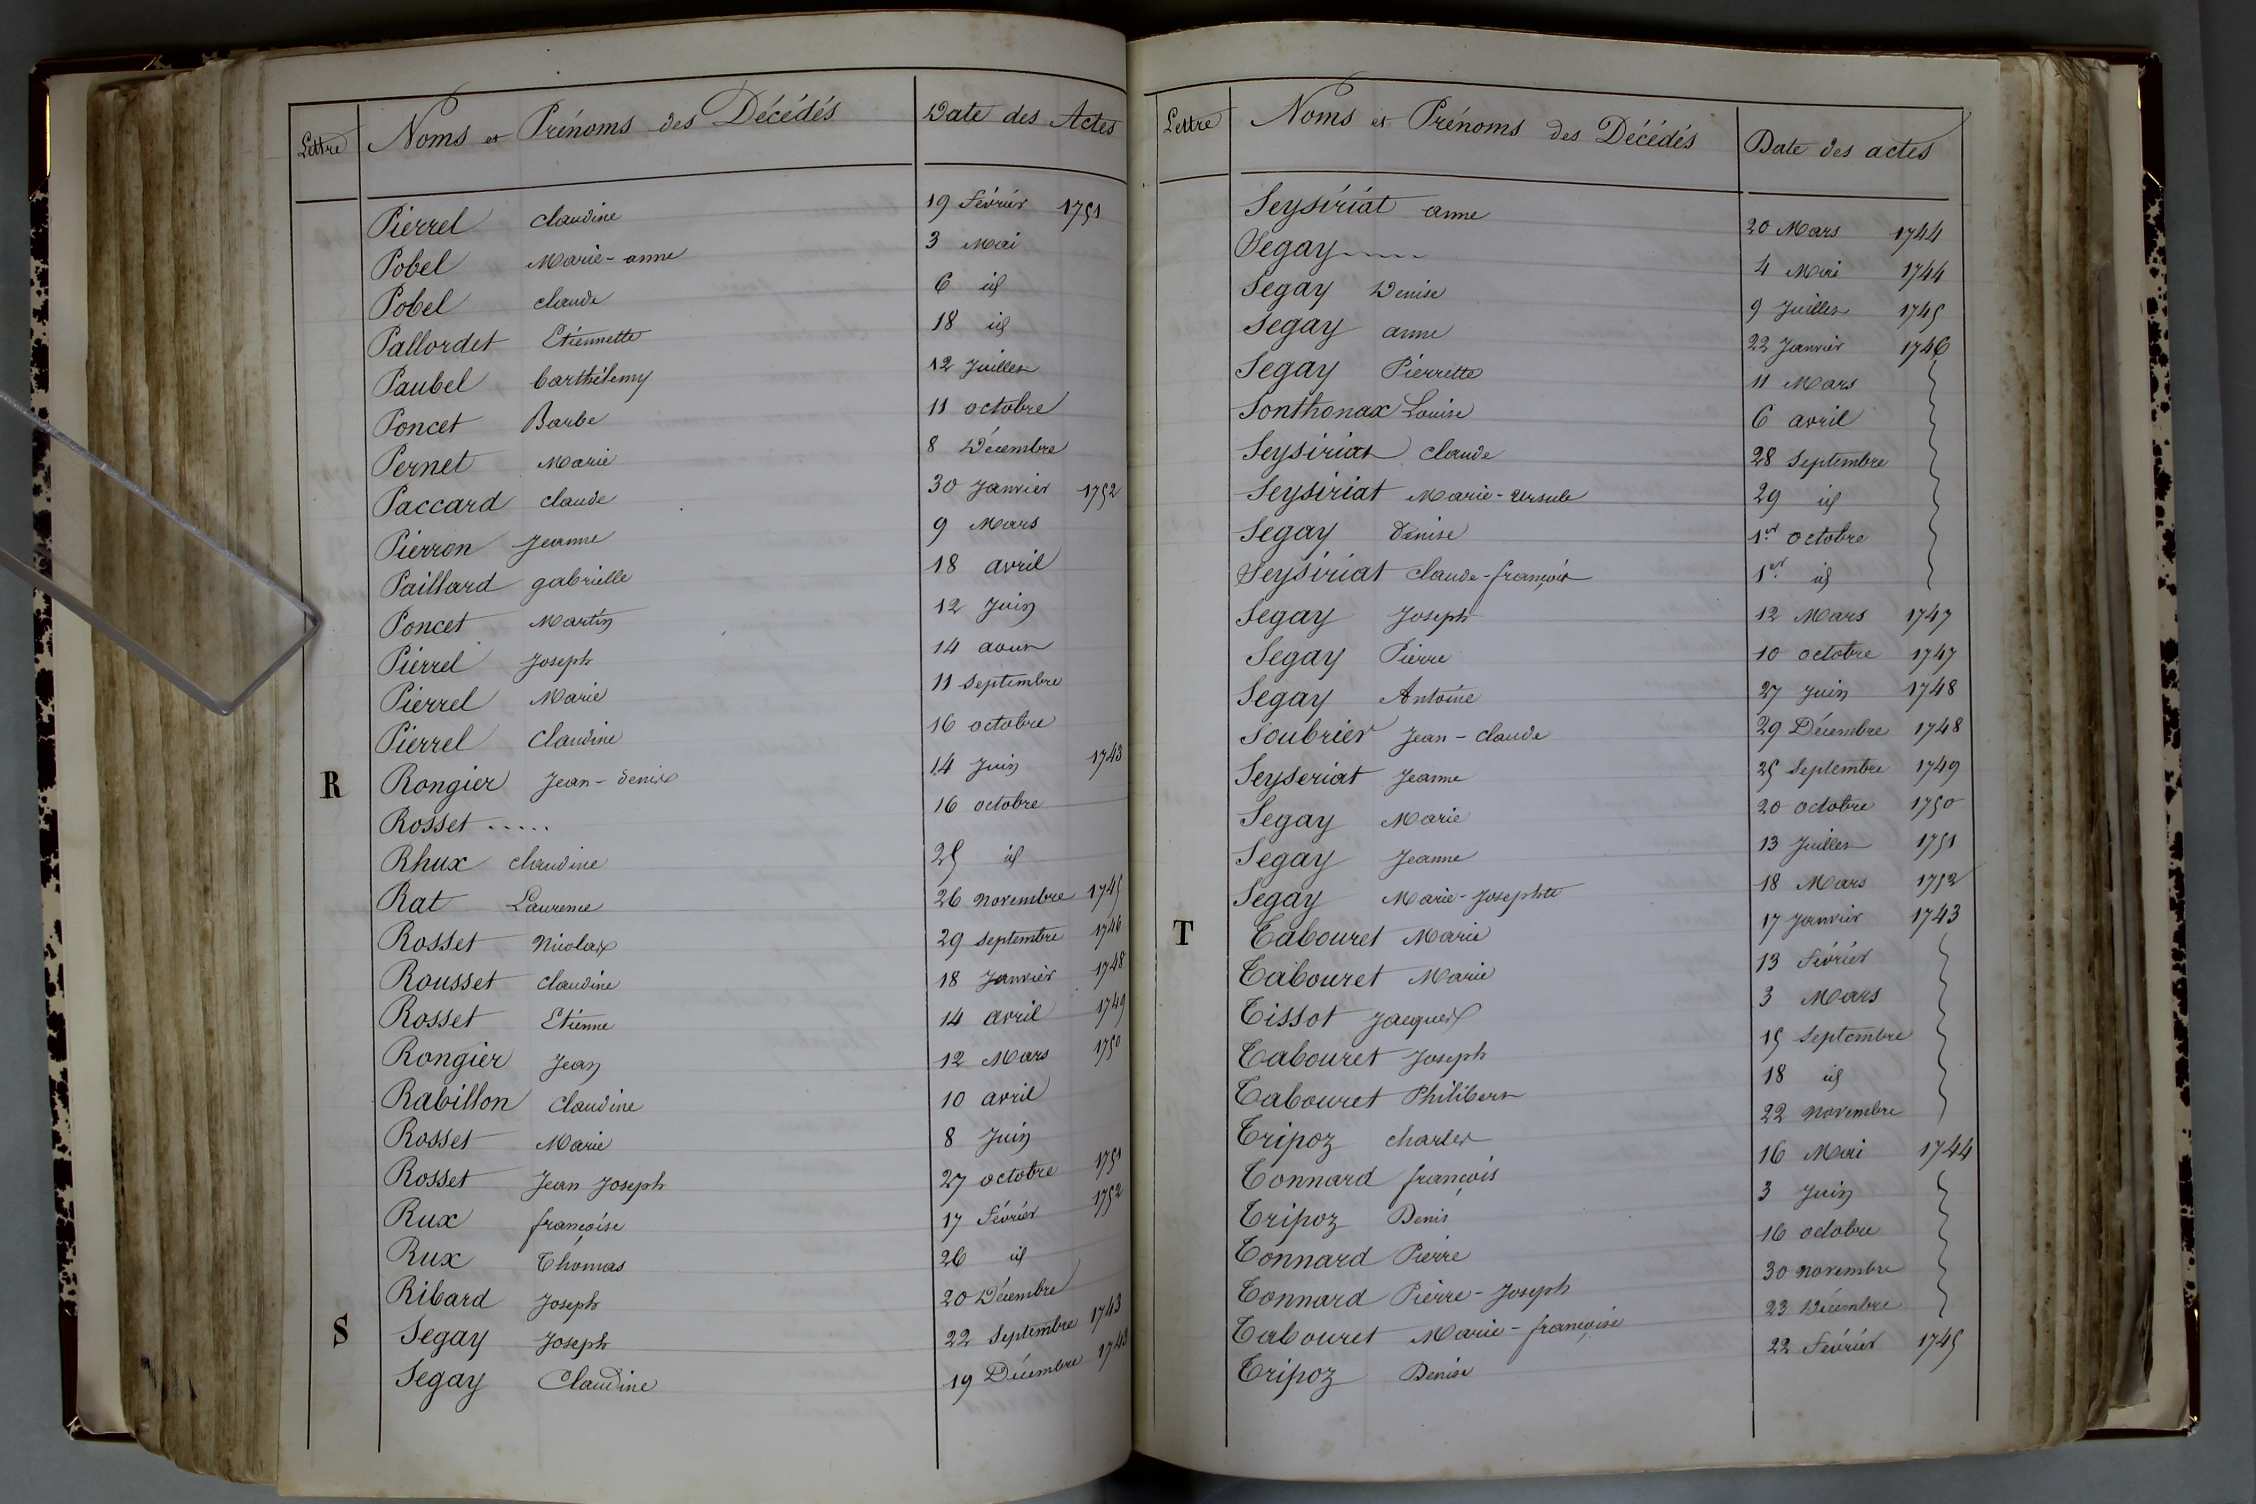 Lettre Noms et Prénoms des Décédés Date des Actes
Pierrel Claudine 19 Février 1751
Pobel Marie-anne 3 Mai
Pobel claude 6 id
Pallordet Etiennette 18 id
Paubel barthélemy 12 Juillet
Poncet Barbe 11 octobre
Pernet Marie 8 Décembre
Paccard claude 30 Janvier 1752
Pierron Jeanne 9 Mars
Paillard gabrielle 18 avril
Poncet Martin 12 Juin
Pierrel Joseph 14 aout
Pierrel Marie 11 Septembre
Pierrel Claudine 16 octobre
R Rongier Jean-denis 14 Juin 1743
Rosset ..... 16 octobre
Rhux claudine 25 id
Rat Laurence 26 novembre 1745
Rosset Nicolas 29 septembre 1746
Rousset claudine 18 Janvier 1748
Rosset Etienne 14 avril 1749
Rongier Jean 12 Mars 1750
Rabillon Claudine 10 avril
Rosset Marie 8 Juin
Rosset Jean Joseph 27 octobre 1751
Rux françoise 17 Février 1752
Rux Thomas 26 id
Ribard Joseph 20 Décembre
S Segay Joseph 22 Septembre 1743
Segay Claudine 19 Décembre 1743
Lettre Noms et Prénoms des Décédés Date des actes
Seysiriat anne 20 Mars 1744
Segay ..... 4 Mai 1744
Segay Denise 9 Juillet 1745
Segay anne 22 Janvier 1746
Segay Pierrette 11 Mars
Sonthonax Louise 6 avril
Seysiriat claude 28 Septembre
Seysiriat Marie-ursule 29 id
Segay Denise 1er octobre
Seysiriat claude-françois 1er id
Segay Joseph 12 Mars 1747
Segay Pierre 10 octobre 1747
Segay Antoine 27 Juin 1748
Soubrier Jean-claude 29 Décembre 1748
Seyseriat Jeanne 25 Septembre 1749
Segay Marie 20 octobre 1750
Segay Jeanne 13 Juillet 1751
Segay Marie-Josephte 18 Mars 1752
T Tabouret Marie 17 Janvier 1743
Tabouret Marie 13 Février
Tissot Jacques 3 Mars
Tabouret Joseph 15 Septembre
Tabouret Philibert 18 id
Tripoz charles 22 novembre
Tonnard françois 16 Mai 1744
Tripoz Denis 3 Juin
Tonnard Pierre 16 octobre
Tonnard Pierre-Joseph 30 novembre
Tabouret Marie-françoise 23 Décembre
Tripoz Denise 22 Février 1745